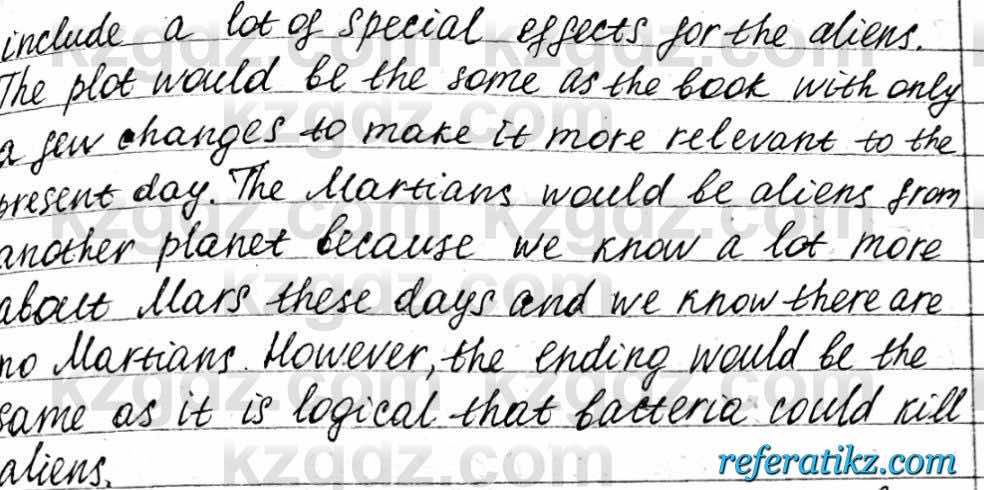 include a lot of special effects for the aliens.
The plot would be the same as the book with only
a few changes to make it more relevant to the
present day. The Martians would be aliens from
another planet because we know a lot more
about Mars these days and we know there are
no Martians. However, the ending would be the
same as it is logical that bacteria could kill
aliens.
referatikz.com